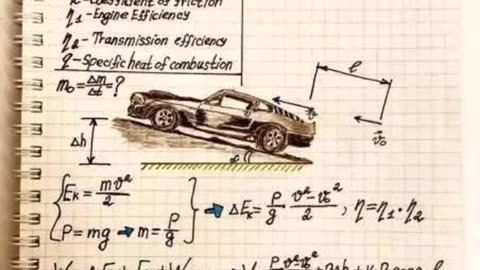 k-Coefficient of friction
η₁-Engine Efficiency
η₂-Transmission efficiency
q-Specific heat of combustion
m₀=Δm/Δt=?
l
v
v⃗₀
Δh
α
Eₖ=mv²/2
P=mg → m=P/g
→ ΔEₖ=P/g (v²-v₀²)/2 ; η=η₁·η₂